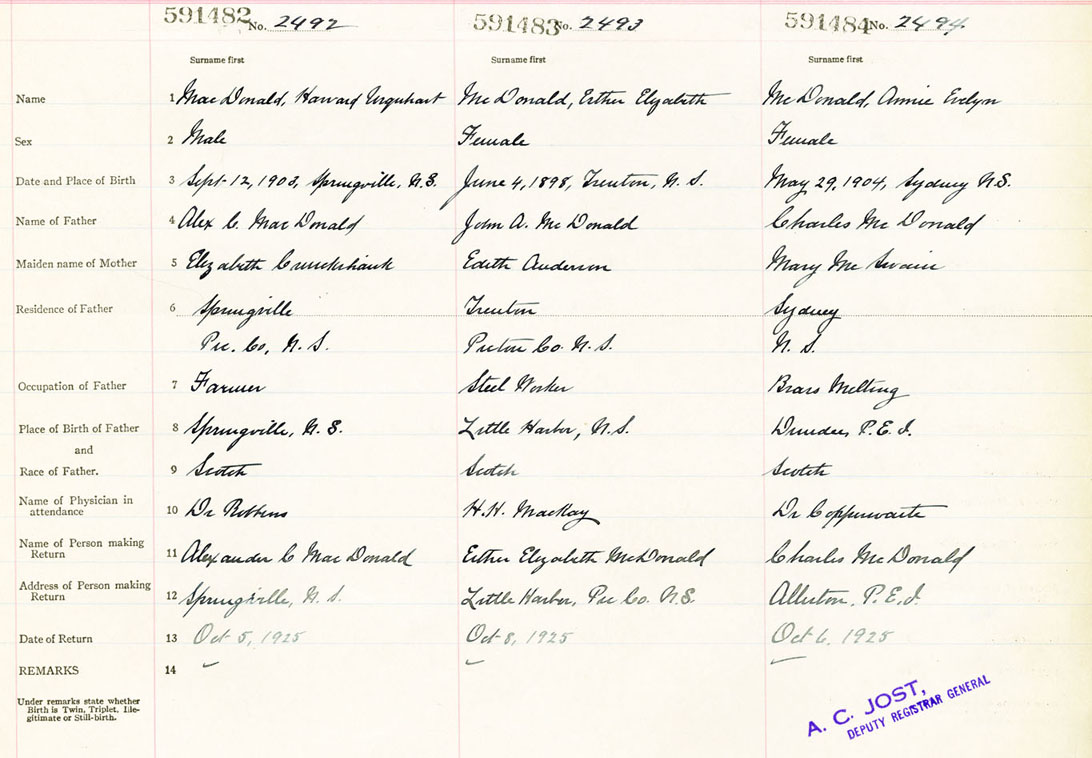 591482 No. 2492 591483 No. 2493 591484 No. 2494
Surname first Surname first Surname first
Name 1 MacDonald, Howard Urquhart McDonald, Esther Elizabeth McDonald, Annie Evelyn
Sex 2 Male Female Female
Date and Place of Birth 3 Sept 12, 1903, Springville, N.S. June 4, 1898, Trenton, N.S. May 29, 1904, Sydney N.S.
Name of Father 4 Alex C. MacDonald John A. McDonald Charles McDonald
Maiden name of Mother 5 Elizabeth Cruickshank Edith Anderson Mary McSwain
Residence of Father 6 Springville Trenton Sydney
Pic. Co, N.S. Pictou Co. N.S. N.S.
Occupation of Father 7 Farmer Steel Worker Brass Melting
Place of Birth of Father 8 Springville, N.S. Little Harbor, N.S. Dundee, P.E.I.
and
Race of Father. 9 Scotch Scotch Scotch
Name of Physician in
attendance 10 Dr Robbins H.H. MacKay Dr Copperwaite
Name of Person making
Return 11 Alexander C MacDonald Esther Elizabeth McDonald Charles McDonald
Address of Person making
Return 12 Springville, N.S. Little Harbor, Pic Co. N.S. P.E.I.
Date of Return 13 Oct 5, 1925 Oct 8, 1925 Oct 6, 1925
REMARKS 14
Under remarks state whether
Birth is Twin, Triplet, Ille-
gitimate or Still-birth.
A. C. JOST,
DEPUTY REGISTRAR GENERAL